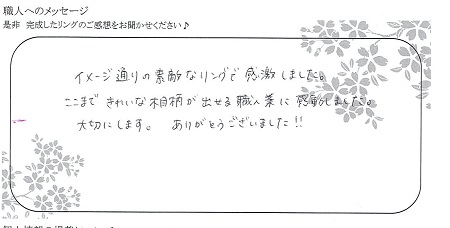 職人へのメッセージ
是非 完成したリングのご感想をお聞かせください♪
イメージ通りの素敵なリングで感激しました。
ここまできれいな木目柄が出せる職人業に感動しました。
大切にします。 ありがとうございました!!